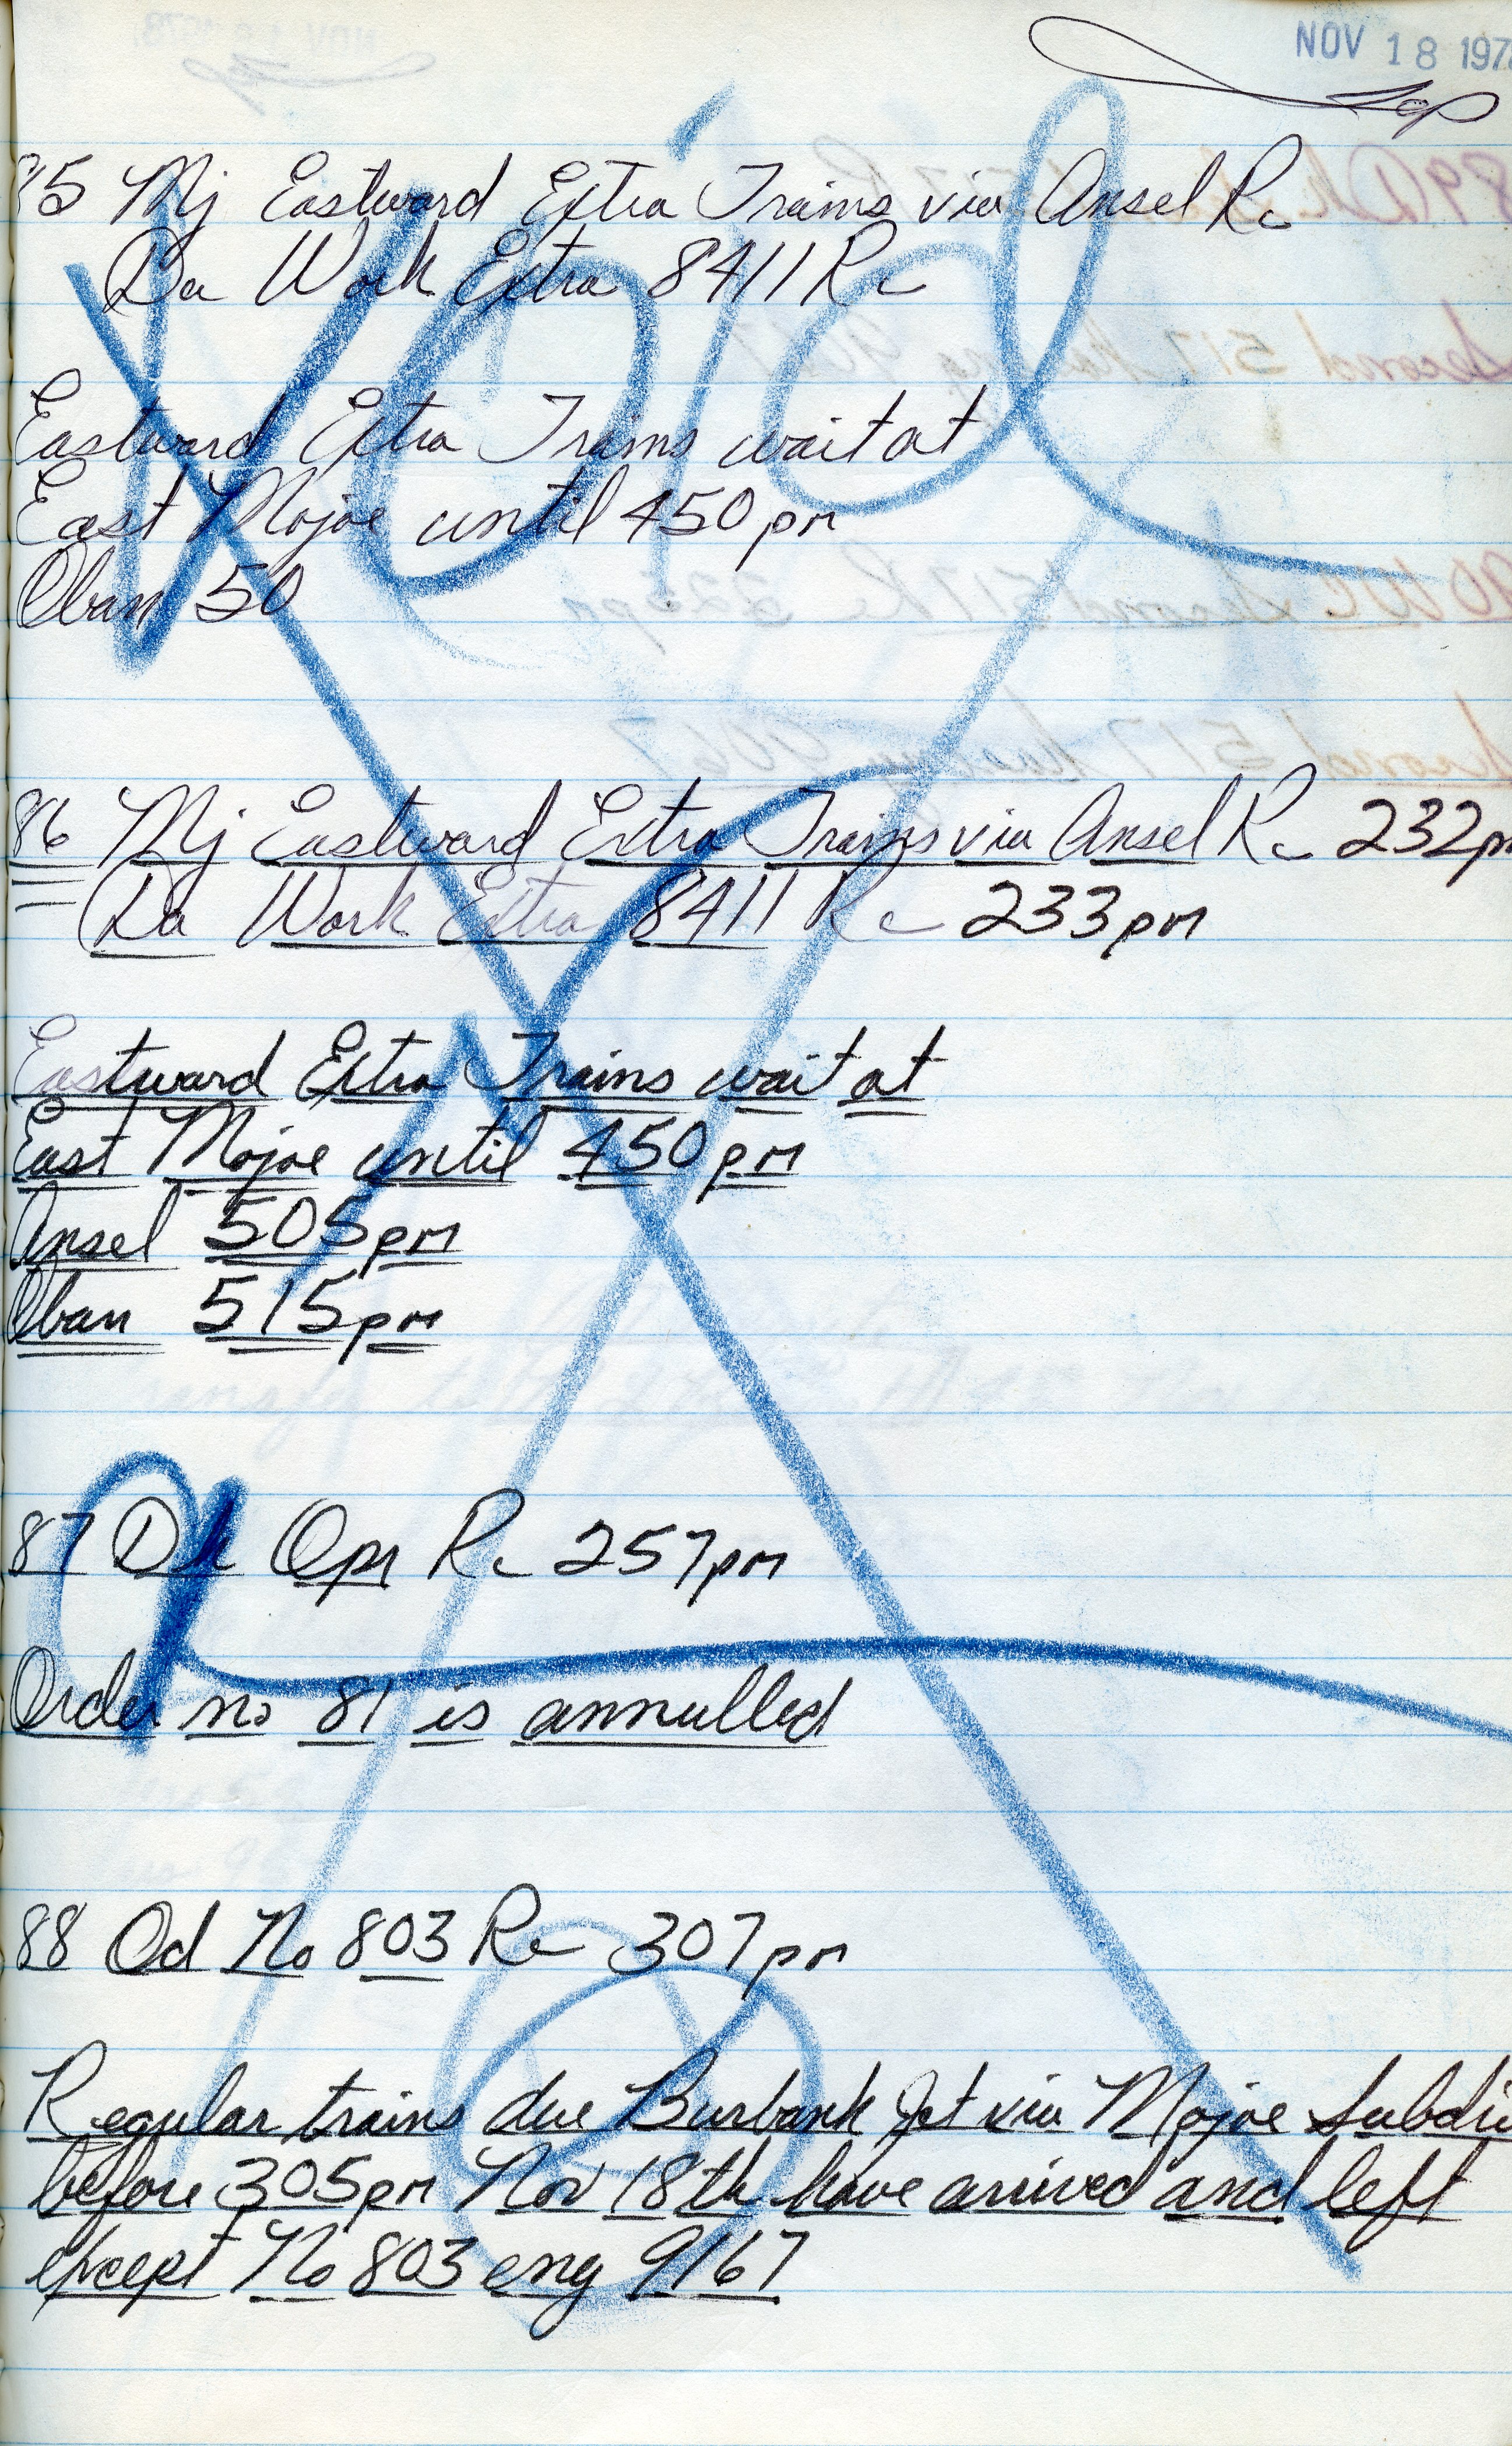 NOV 18 197
85 Mj Eastward Extra Trains via Ansel Rc
Da Work Extra 8411 Rc
Void
Eastward Extra Trains wait at
East Mojave until 450 pm
Oban 50
86 Mj Eastward Extra Trains via Ansel Rc 232 pm
Da Work Extra 8411 Rc 233 pm
Eastward Extra Trains wait at
East Mojave until 450 pm
Ansel 505 pm
Oban 515 pm
87 Dk Opr Rc 257 pm
Order no 81 is annulled
88 Od No 803 Rc 307 pm
Regular trains due Burbank Jct via Mojave Subdiv
before 305 pm Nov 18th have arrived and left
except No 803 eng 9167